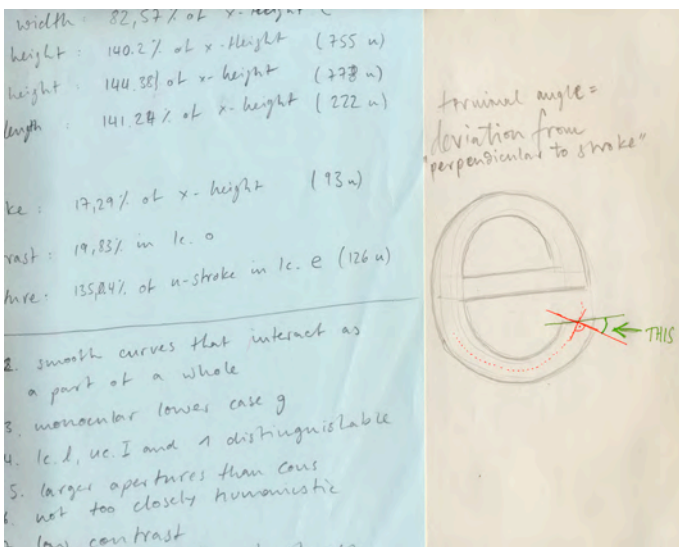 width : 82,57% of x-height (
height : 140.2% of x-Height (755 u)
height : 144.38% of x-height (778 u)
length : 141.24% of x-height (222 u)
ke : 17,29% of x-height (93 u)
rast : 19,83% in lc. o
ture : 135,04% of n-stroke in lc. e (126 u)
2. smooth curves that interact as
a part of a whole
3. monocular lower case g
4. lc. l, uc. I and 1 distinguishable
5. larger apertures than cons
6. not too closely humanistic
7. low contrast
terminal angle =
deviation from
"perpendicular to stroke"
e
← THIS